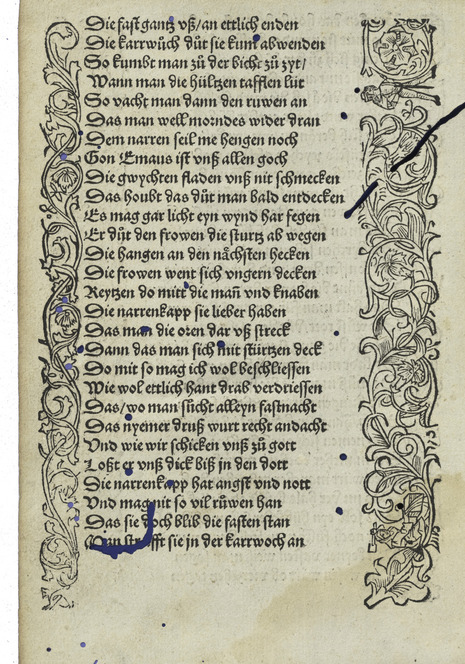 Die fast gantz vß/an ettlich enden
Die karrwůch důt sie kum abwenden
So kumbt man zů der bicht zů zyt/
Wann man die hültzen tafflen lüt
So vacht man dann den ruwen an
Das man well morndes wider dran
Dem narren seil me hengen noch
Gon Emaus ist vnß allen goch
Die gwychten fladen vnß nit schmecken
Das houbt das důt man bald entdecken
Es mag gar licht eyn wynd har fegen
Er důt den frowen die sturtz ab wegen
Die hangen an den nächsten hecken
Die frowen went sich vngern decken
Reytzen do mitt die mañ vnd knaben
Die narrenkapp sie lieber haben
Das man die oren dar vß streck
Dann das man sich mit stürtzen deck
Do mit so mag ich wol beschliessen
Wie wol ettlich hant drab verdriessen
Das/wo man sůcht alleyn fastnacht
Das nyemer druß wurt recht andacht
Vnd wie wir schicken vnß zů gott
Loßt er vnß dick biß in den dott
Die narrenkapp hat angst vnd nott
Vnd mag nit so vil růwen han
Das sie doch blib die fasten stan
sie in der karrwoch an